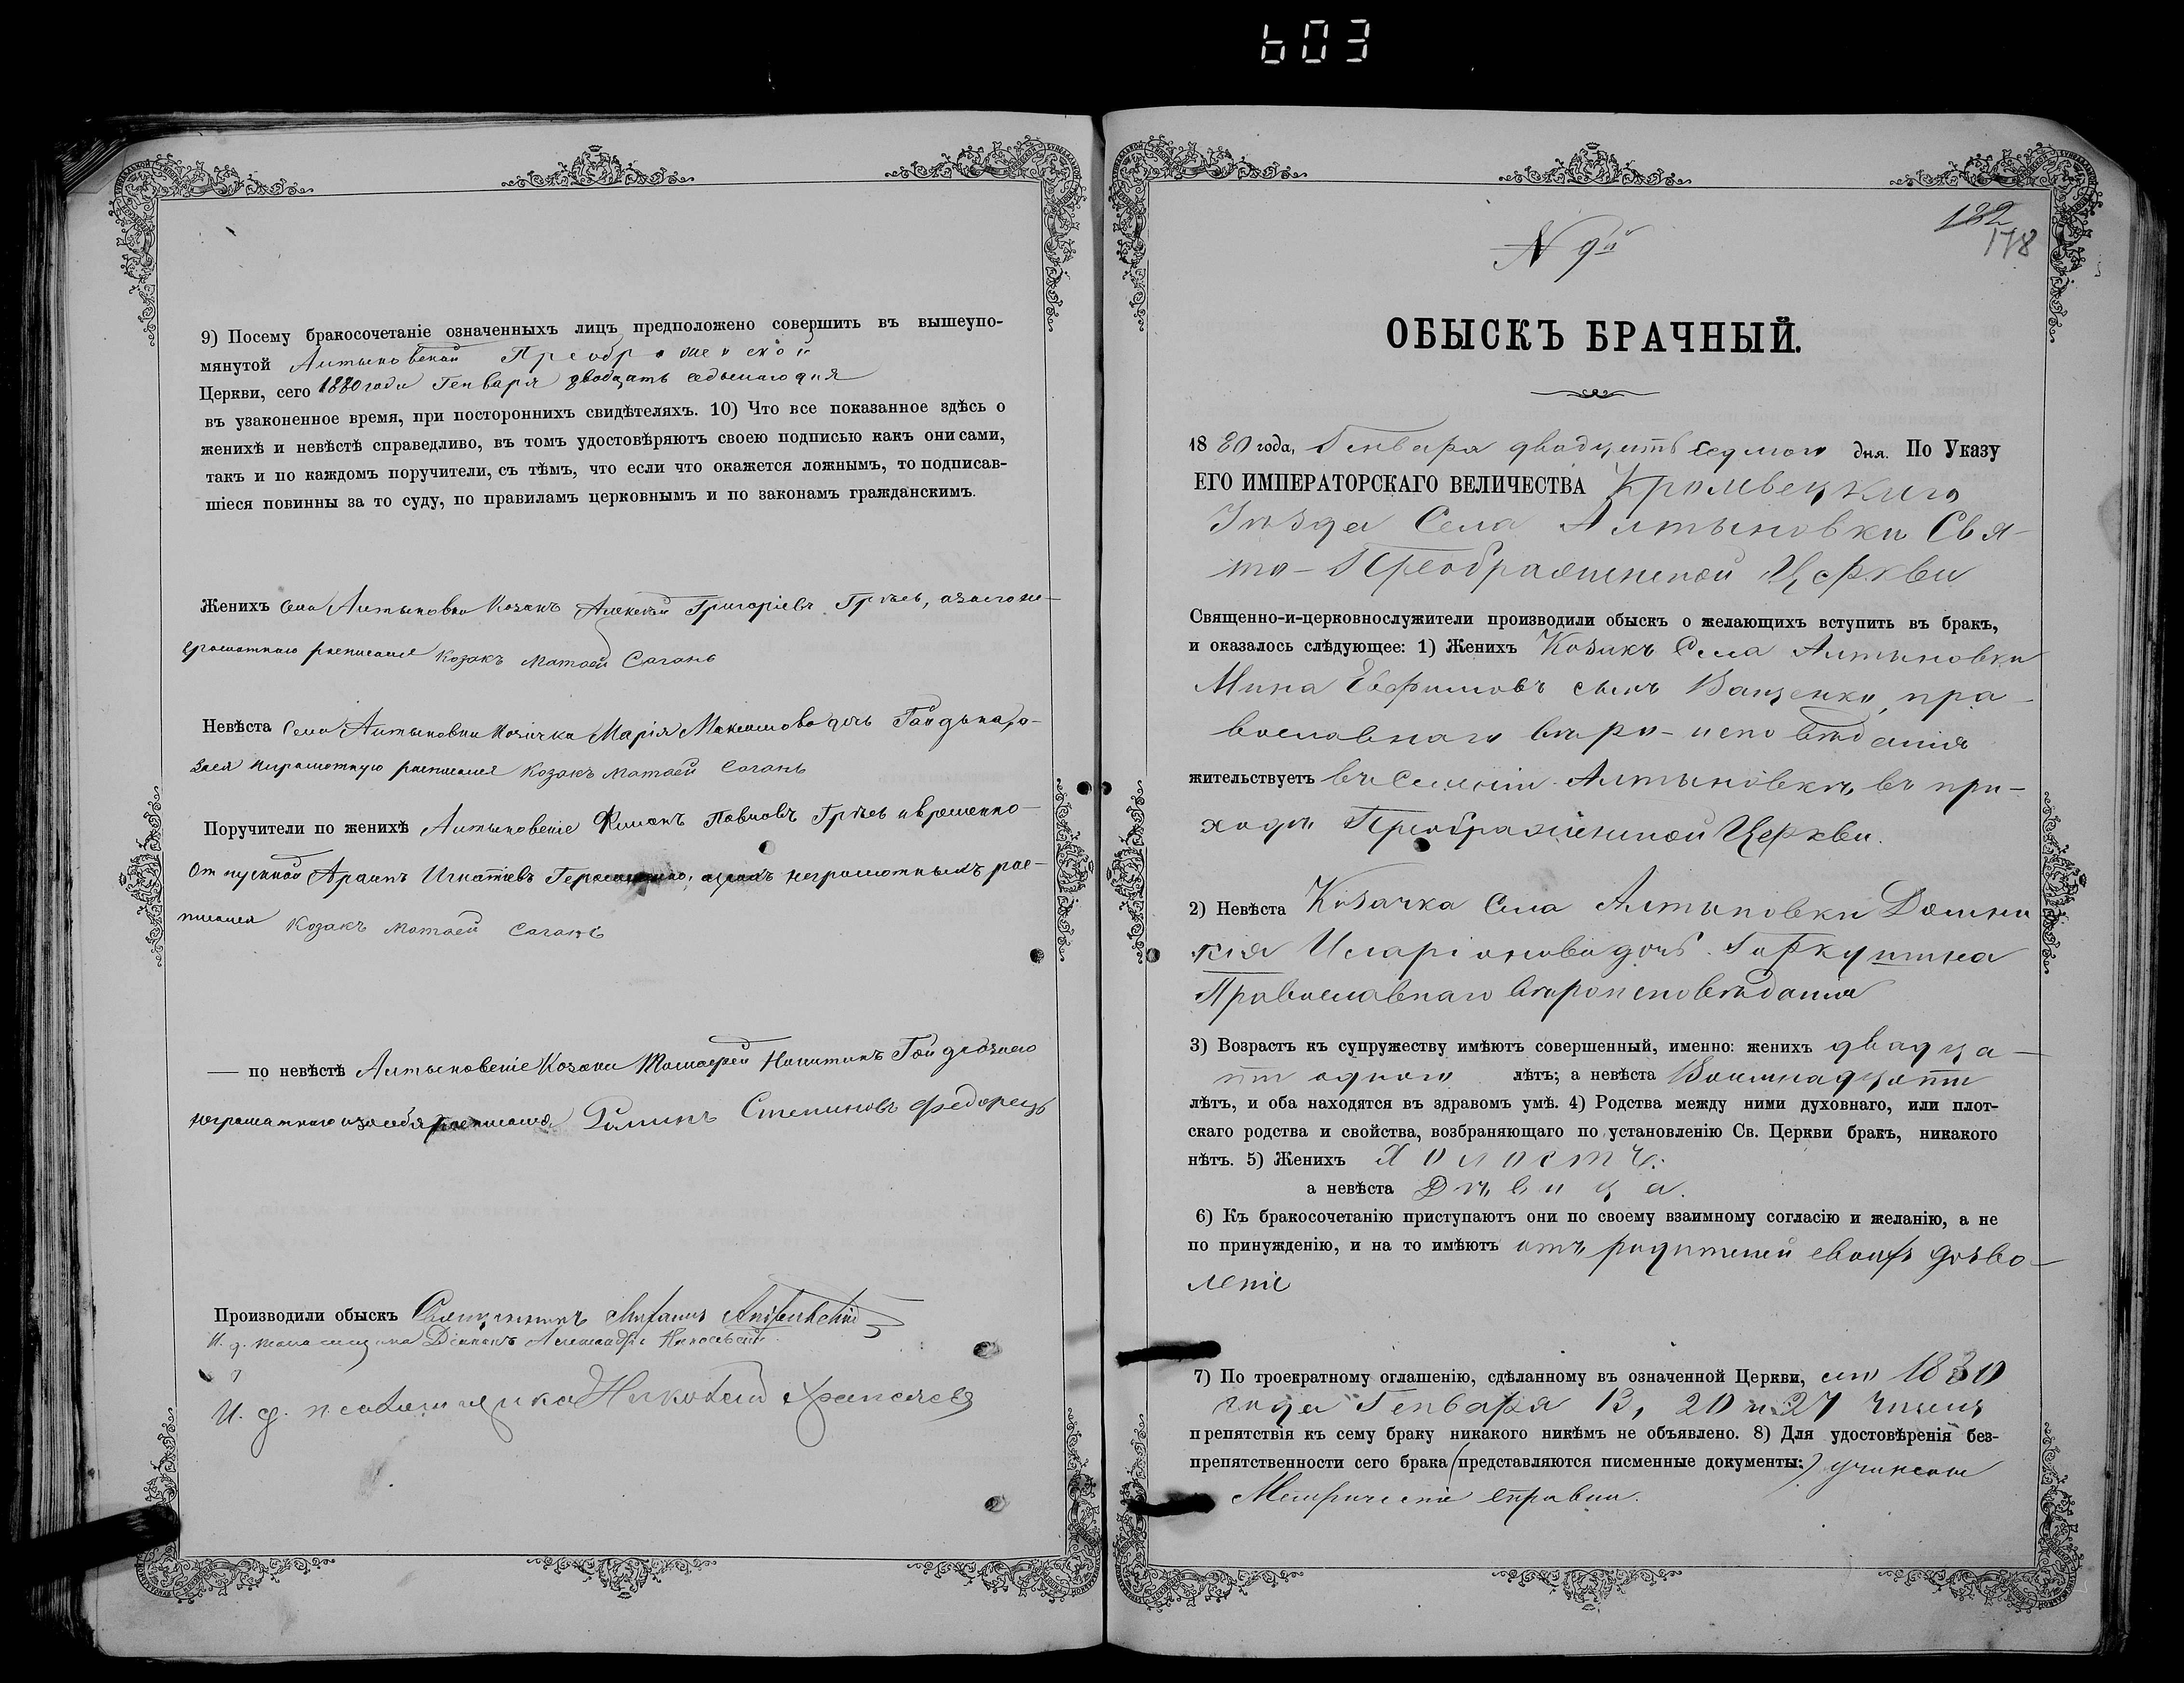 603
9) Посему бракосочетаніе означенныхъ лицъ предположено совершить въ вышеупо-
мянутой Алтыновской Преображенской
Церкви, сего 1880 года Генваря двадцать седьмаго дня
въ узаконенное время, при постороннихъ свидѣтеляхъ. 10) Что все показанное здѣсь о
женихѣ и невѣстѣ справедливо, въ томъ удостовѣряютъ своею подписью какъ они сами,
такъ и по каждомъ поручители, съ тѣмъ, что если что окажется ложнымъ, то подписав-
шіеся повинны за то суду, по правиламъ церковнымъ и по законамъ гражданскимъ.
Женихъ Села Алтыновки Козакъ Алексѣй Григоріевъ
росписался Козакъ Матвей Сагань
Невѣста Села Алтыновки Козачка Марія Максимова дочь
неграмотную росписался Козакъ Матвей Сагань
Поручители по женихѣ Алтыновскіе Павловъ временно-
Отпускной Игнатіевъ неграмотныхъ рос-
писался Козакъ Матвей Сагань
— по невѣстѣ Алтыновскіе Козаки Никитинъ
росписался Степановъ Федорецъ
Производили обыскъ Священникъ
И. д. псаломщика Діаконъ Александръ
И. д. псаломщика Николай
182
178
N 9й
ОБЫСКЪ БРАЧНЫЙ.
1880 года, Генваря двадцать седмого дня. По Указу
ЕГО ИМПЕРАТОРСКАГО ВЕЛИЧЕСТВА Кролевецкаго
Уѣзда Села Алтыновки Свя-
то-Преображенской Церкви
Священно-и-церковнослужители производили обыскъ о желающихъ вступить въ бракъ,
и оказалось слѣдующее: 1) Женихъ Козакъ Села Алтыновки
Мина Евфимовъ сынъ Ващенко, пра-
вославнаго вѣро-исповѣданія
жительствуетъ въ селеніи Алтыновкѣ, въ при-
ходѣ Преображенской Церкви.
2) Невѣста Козачка Села Алтыновки Домни
кія Иларіонова дочь Гаркушина
Православнаго вѣроисповѣданія
3) Возрастъ къ супружеству имѣютъ совершенный, именно: женихъ двадца-
ти одного лѣтъ; а невѣста Восмнадцати
лѣтъ, и оба находятся въ здравомъ умѣ. 4) Родства между ними духовнаго, или плот-
скаго родства и свойства, возбраняющаго по установленію Св. Церкви бракъ, никакого
нѣтъ. 5) Женихъ Холостъ.
а невѣста Дѣвица.
6) Къ бракосочетанію приступаютъ они по своему взаимному согласію и желанію, а не
по принужденію, и на то имѣютъ отъ родителей своихъ дозво-
леніе
7) По троекратному оглашенію, сдѣланному въ означенной Церкви, сего 1880
года Генваря 13, 20 и 27 числъ
препятствія къ сему браку никакого никѣмъ не объявлено. 8) Для удостовѣренія без-
препятственности сего брака (представляются писменные документы:) учинены
Метрическіе справки.